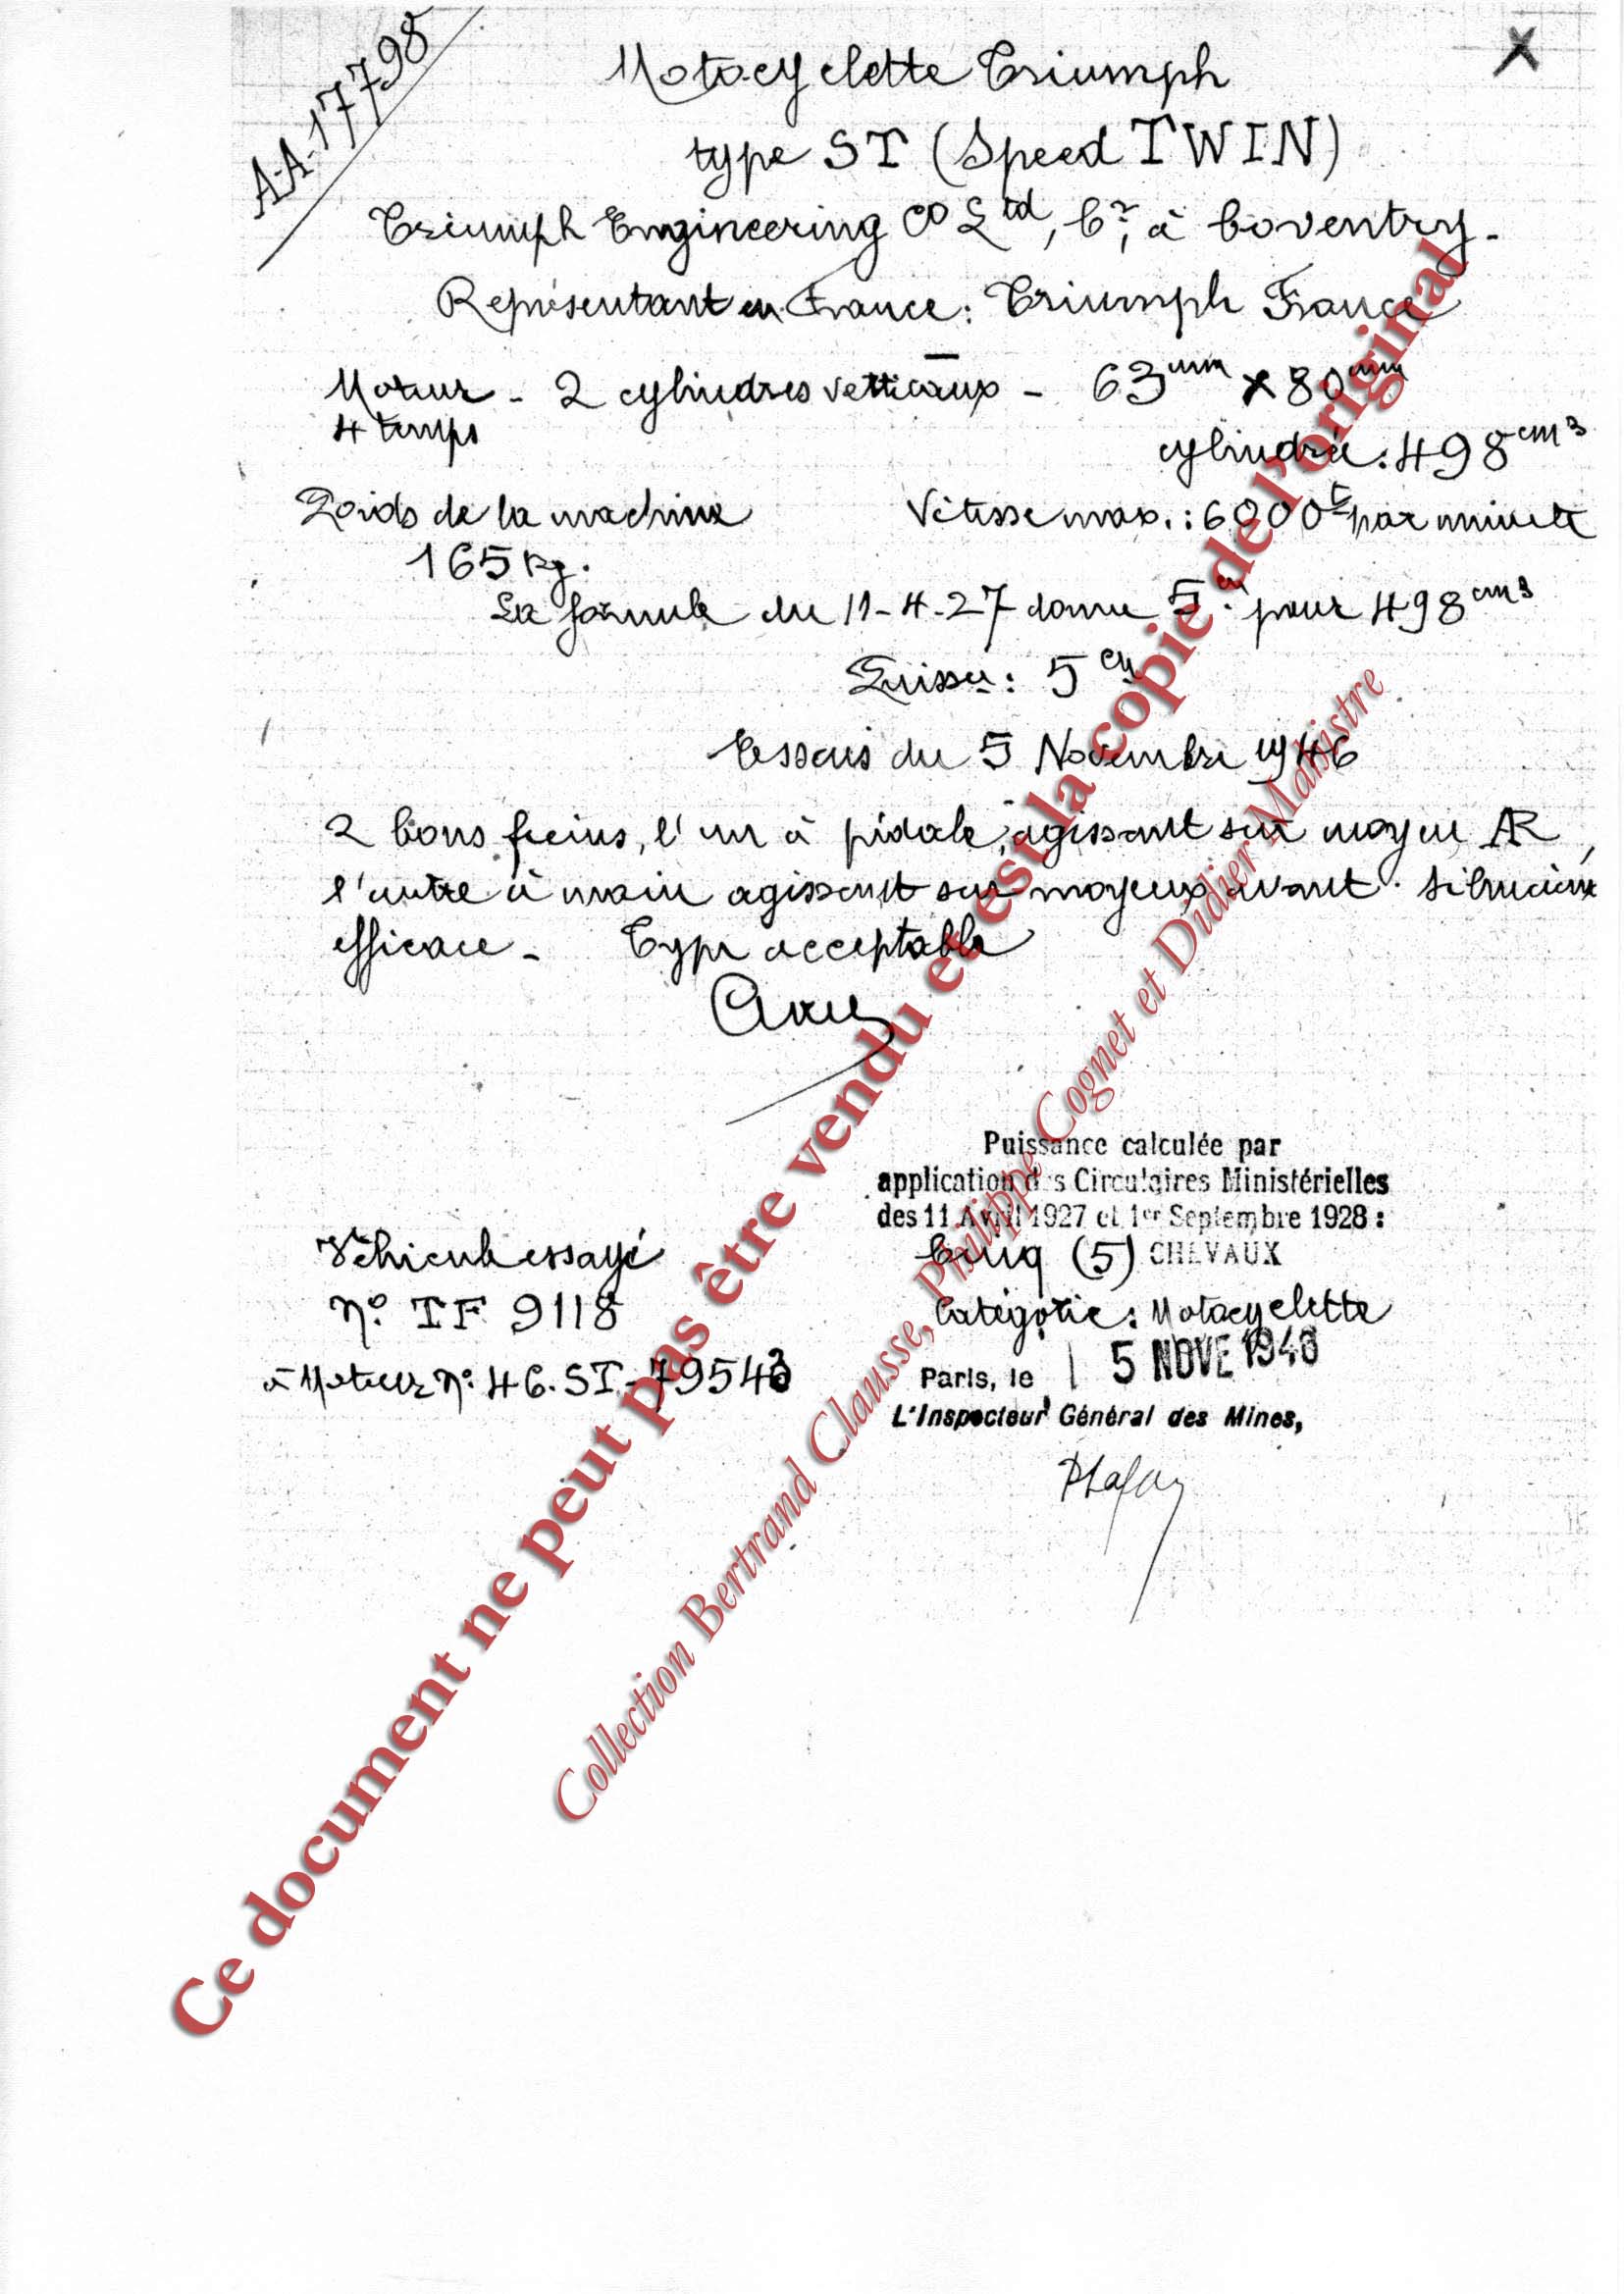 AA-177798
X
Motocyclette Triumph
type ST (Speed TWIN)
Triumph Engineering Co Ltd, Cr, à Coventry.
Représentant en France: Triumph France
Moteur - 2 cylindres verticaux - 63mm x 80mm
4 temps
cylindrée: 498 cm3
Poids de la machine
Vitesse max.: 6000 t par minute
165 kg.
La formule du 11-4-27 donne 5 cv pour 498 cm3
Puissce: 5 cv
Essais du 5 Novembre 1946
2 bons freins, l'un à pédale, agissant sur moyeu AR,
l'autre à main agissant sur moyeux avant. Silencieux
efficace - Type acceptable
Puissance calculée par
application des Circulaires Ministérielles
des 11 Avril 1927 et 1er Septembre 1928:
Véhicule essayé
Cinq (5) CHEVAUX
n° TF 9118
Catégorie: Motocyclette
à Moteur n° 46.ST-79543
Paris, le 15 NOVE 1946
L'Inspecteur Général des Mines,
Ce document ne peut pas être vendu et est la copie de l'original
Collection Bertrand Clausse, Philippe Cognet et Didier Mahistre